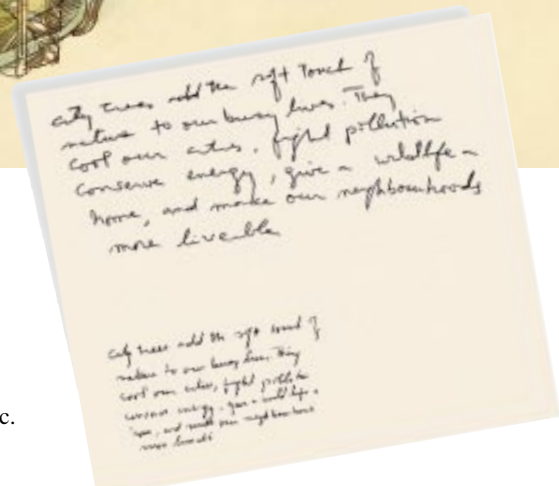 city trees add the soft touch of
nature to our busy lives. They
cool our cities, fight pollution
conserve energy, give a wildlife a
home, and make our neighbourhoods
more liveable
city trees add the soft touch of
nature to our busy lives. They
cool our cities, fight pollution
conserve energy, give a wild life a
home, and make our neighbourhoods
more
c.